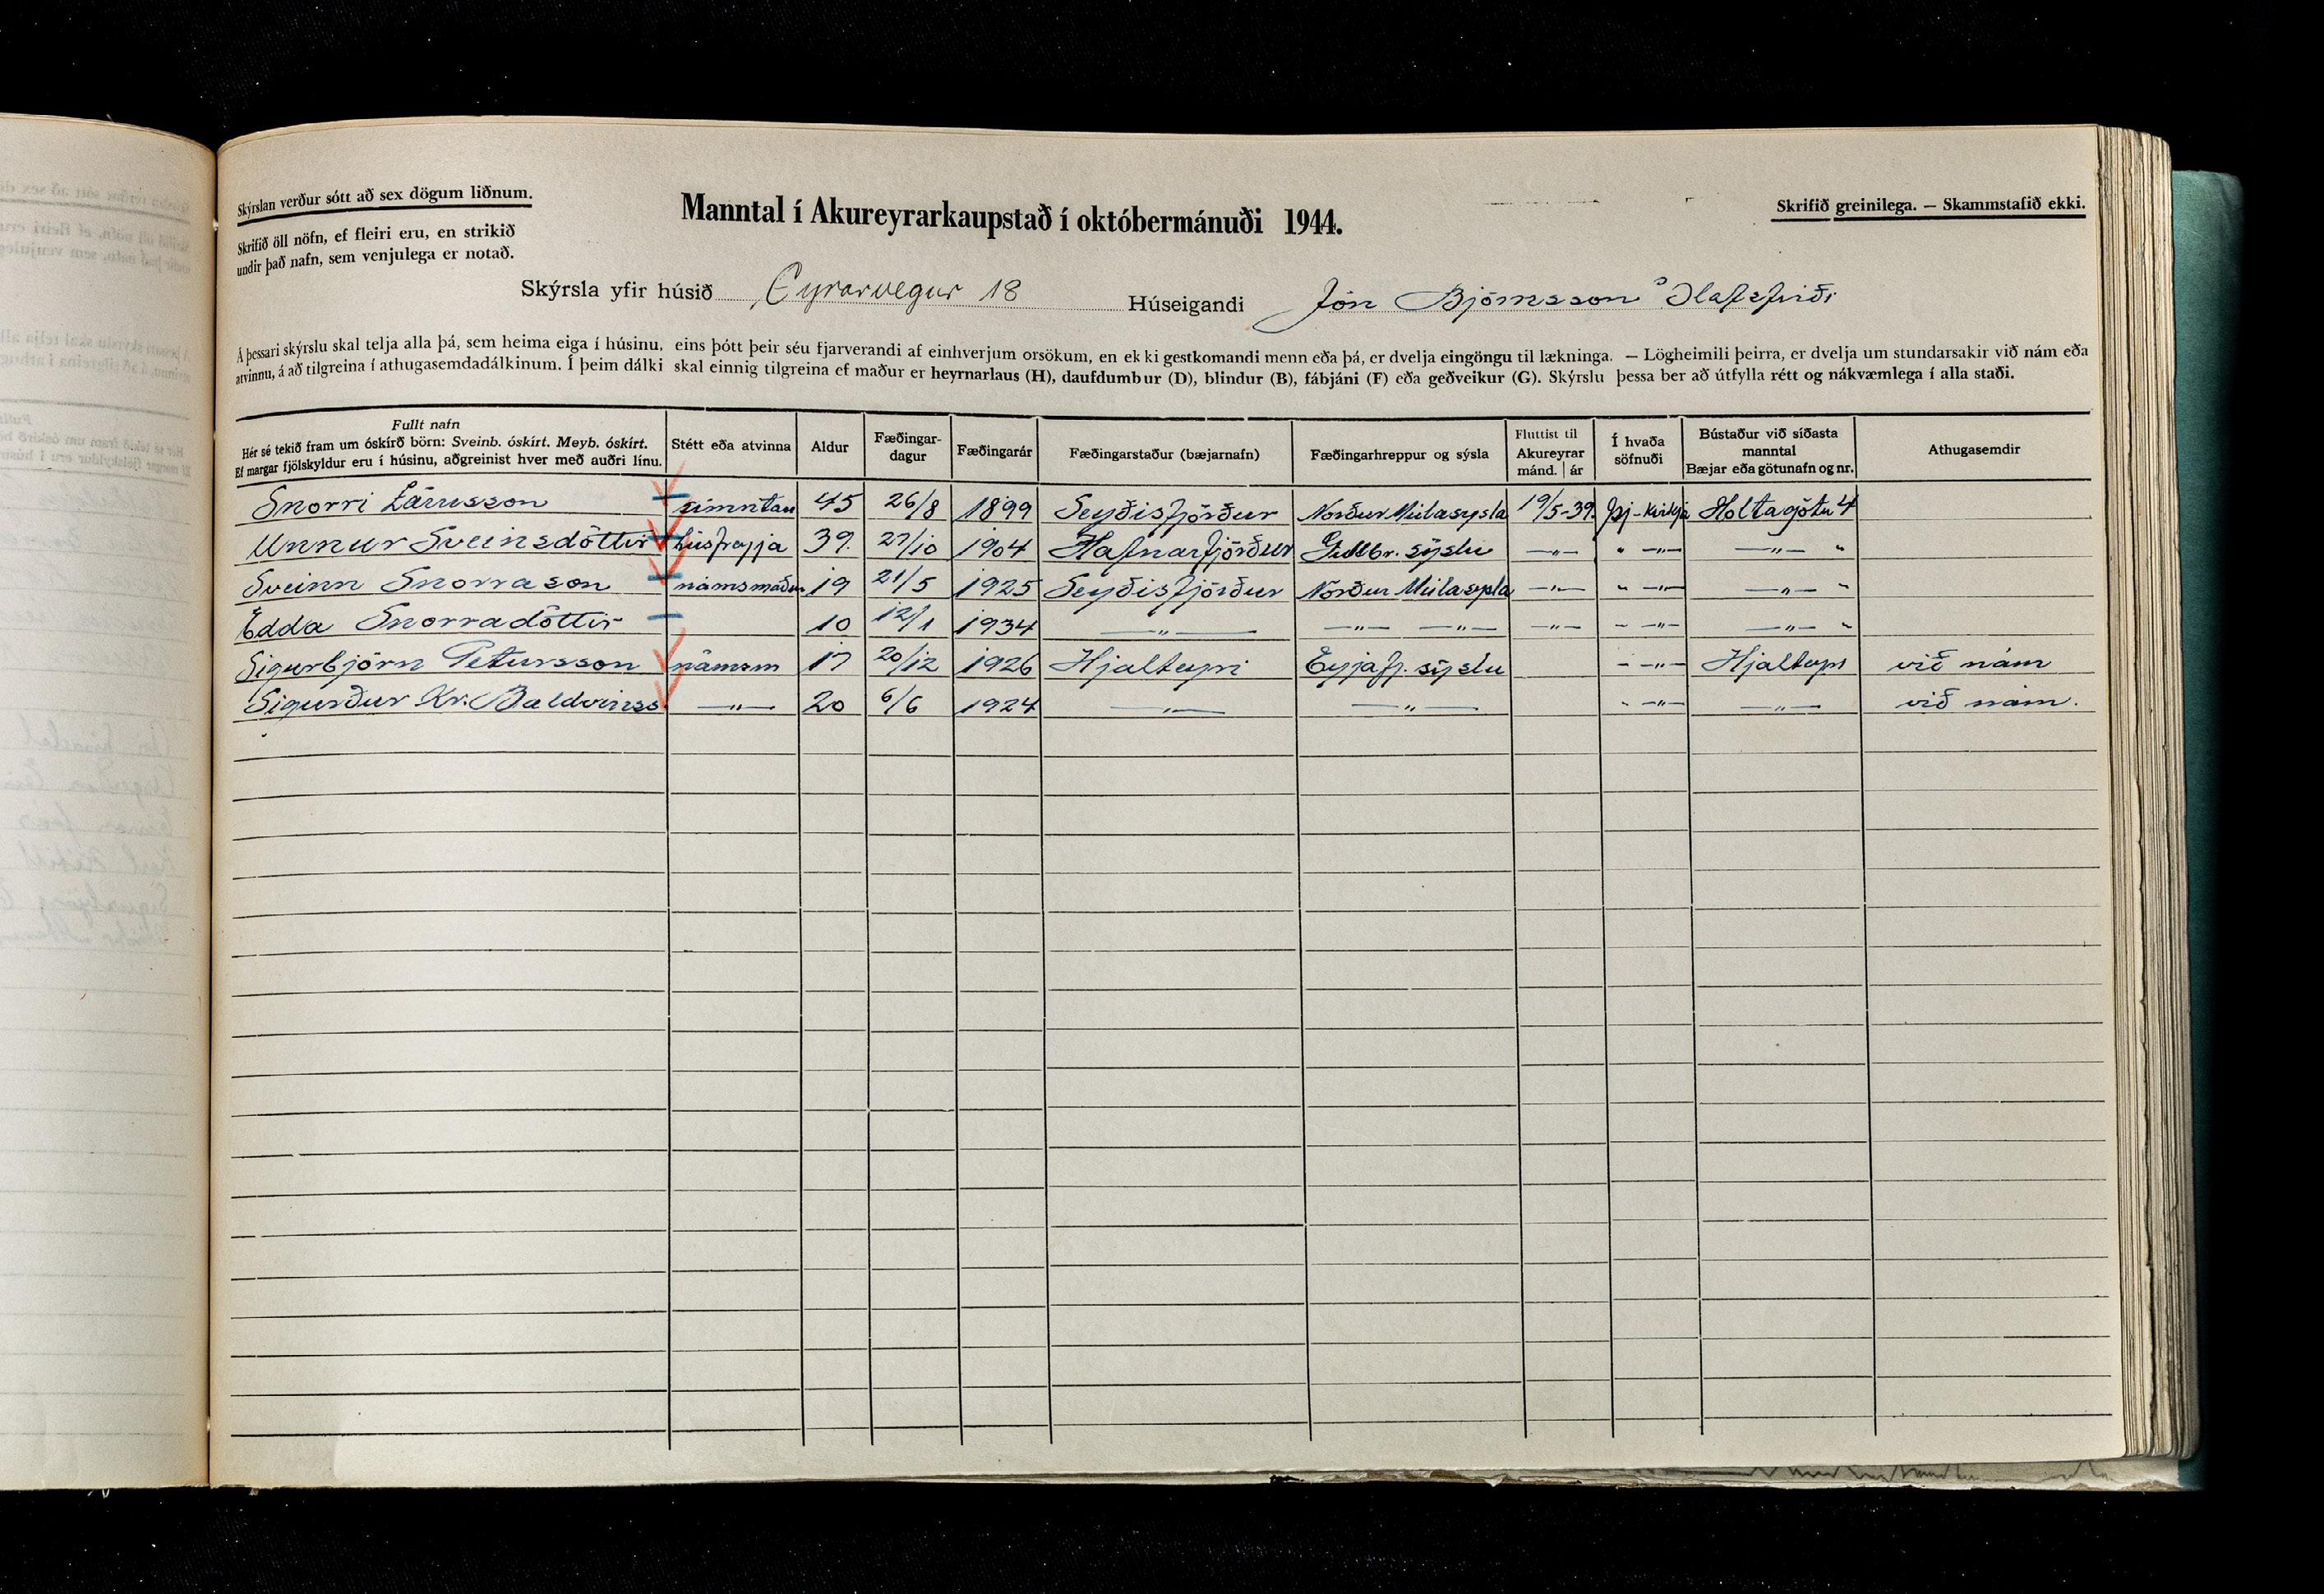 Skýrslan verður sótt að sex dögum liðnum.
Skrifið öll nöfn, ef fleiri eru, en strikið
undir það nafn, sem venjulega er notað.
Manntal í Akureyrarkaupstað í októbermánuði 1944.
Skrifið greinilega. — Skammstafið ekki.
Skýrsla yfir húsið Eyrarvegur 18 Húseigandi Jón Björnsson Ólafsfirði
Á þessari skýrslu skal telja alla þá, sem heima eiga í húsinu, eins þótt þeir séu fjarverandi af einhverjum orsökum, en ekki gestkomandi menn eða þá, er dvelja eingöngu til lækninga. — Lögheimili þeirra, er dvelja um stundarsakir við nám eða
atvinnu, á að tilgreina í athugasemdadálkinum. Í þeim dálki skal einnig tilgreina ef maður er heyrnarlaus (H), daufdumbur (D), blindur (B), fábjáni (F) eða geðveikur (G). Skýrslu þessa ber að útfylla rétt og nákvæmlega í alla staði.
Fullt nafn
Hér sé tekið fram um óskírð börn: Sveinb. óskírt. Meyb. óskírt.
Ef margar fjölskyldur eru í húsinu, aðgreinist hver með auðri línu.
Stétt eða atvinna
Aldur
Fæðingar-
dagur
Fæðingarár
Fæðingarstaður (bæjarnafn)
Fæðingarhreppur og sýsla
Fluttist til
Akureyrar
mánd. | ár
Í hvaða
söfnuði
Bústaður við síðasta
manntal
Bæjar eða götunafn og nr.
Athugasemdir
Snorri Lárusson símritari 45 26/8 1899 Seyðisfjörður Norður Múlasysla 19/5-39. Þj-kirkja Holtagötu 4
Unnur Sveinsdóttir húsfreyja 39. 27/10 1904 Hafnarfjörður Gullbr. sýslu —"— " —"— —"— "
Sveinn Snorrason námsmaður 19 21/5 1925 Seyðisfjörður Norður Múlasysla —"— " —"— —"— "
Edda Snorradóttir 10 12/1 1934 —"— —"— —"— —"— " —"— —"— "
Sigurbjörn Pétursson námsm 17 20/12 1926 Hjalteyri Eyjafj. sýslu " —"— Hjalteyri við nám
Sigurður Kr. Baldvinss. —"— 20 6/6 1924 —"— —"— " —"— —"— við nám.